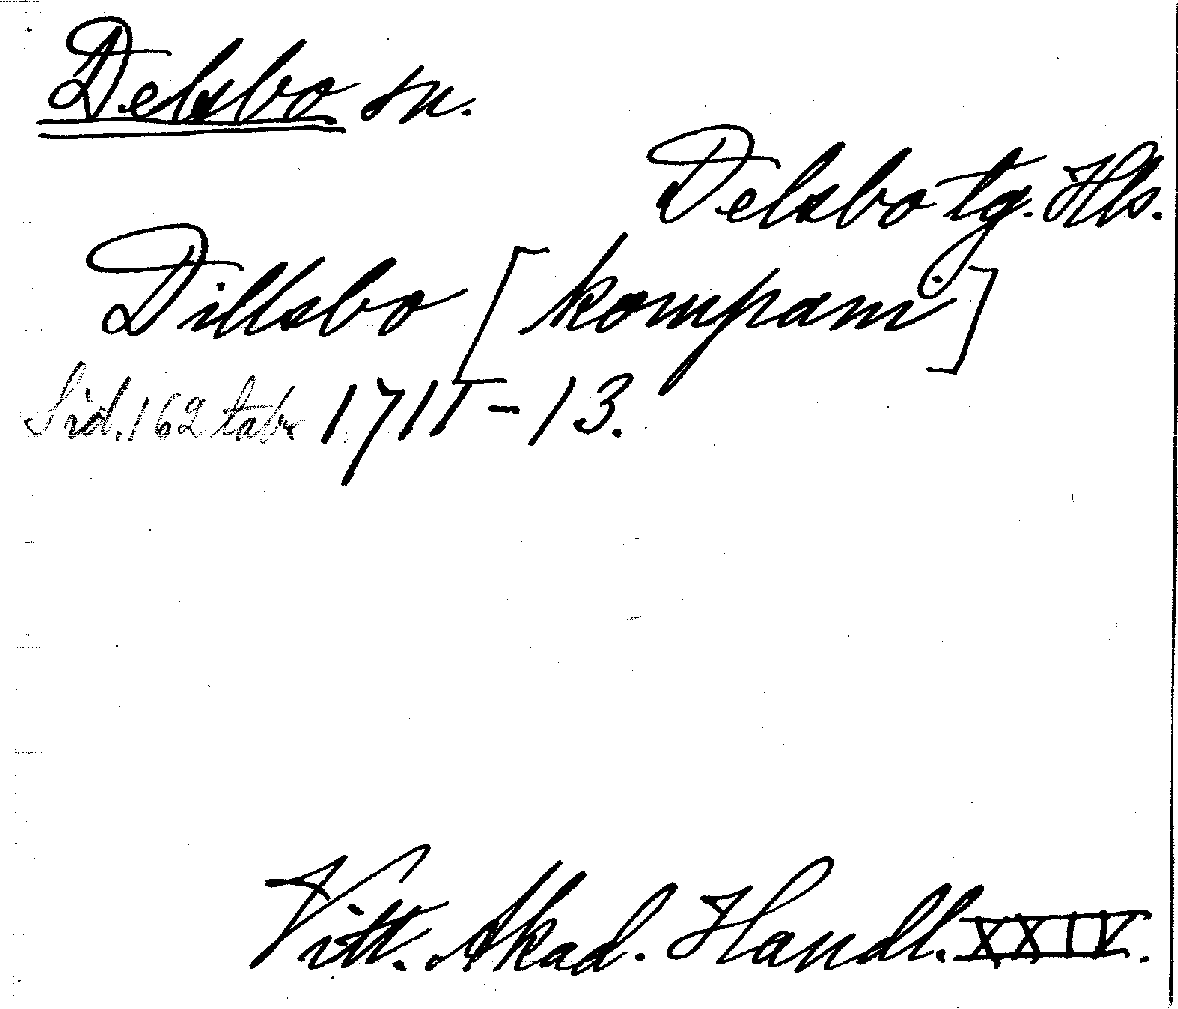 Delsbo sn.
Delsbo tg. Hls.
Dillsbo [kompani]
Sid. 162 tab. 1711-13.
Vitt. Akad. Handl. XXIV.